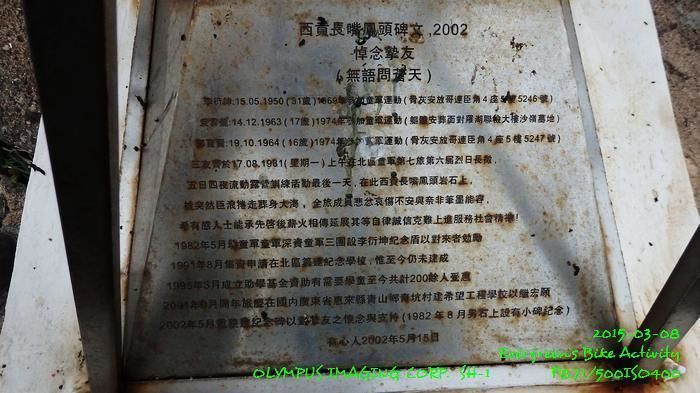 西貢長嘴鳳頭碑文,2002
悼念摯友
(無語問蒼天)
李衍坤:15.05.1950 (31歲)1969年參加童軍運動 (骨灰安放哥連臣角4座5樓5246號)
14.12.1963 (17歲)1974年參加童軍運動 (軀體安葬面對羅湖聯檢大樓沙嶺墓地)
19.10.1964 (16歲)1974年參加童軍運動 (骨灰安放哥連臣角4座5樓5247號)
三友齊於17.08.1981(星期一)上午在北區童軍第七旅第六屆烈日長
五日四夜流動露營訓練活動最後一天,在此西貢長嘴鳳頭岩石上,
被突然巨浪捲走葬身大海,全旅成員悲忿哀傷不安與奈非筆墨能容.
希有感人士能承先啓後薪火相傳延展其等自律誠信克難上進服務社會精神!
1982年5月童軍童軍深資童軍三團設李衍坤紀念盾以對來者勉勵
1991年8月集資申請在北區築建紀念學校,惟至今仍未建成
1995年3月成立助學基金資助有需要學童至今共計200餘人受惠
2001年6月周年旅慶在國內廣東省惠來縣青山鄉青坑村建希望工程學校以繼宏願
2002年5月重整建紀念碑以對摯友之懷念與支持 (1982年8月男石上設有小碑紀念)
有心人2002年5月15日
2015-03-08
Evergreen's Bike Activity
OLYMPUS IMAGING CORP. SH-1
F8 1/500 ISO400